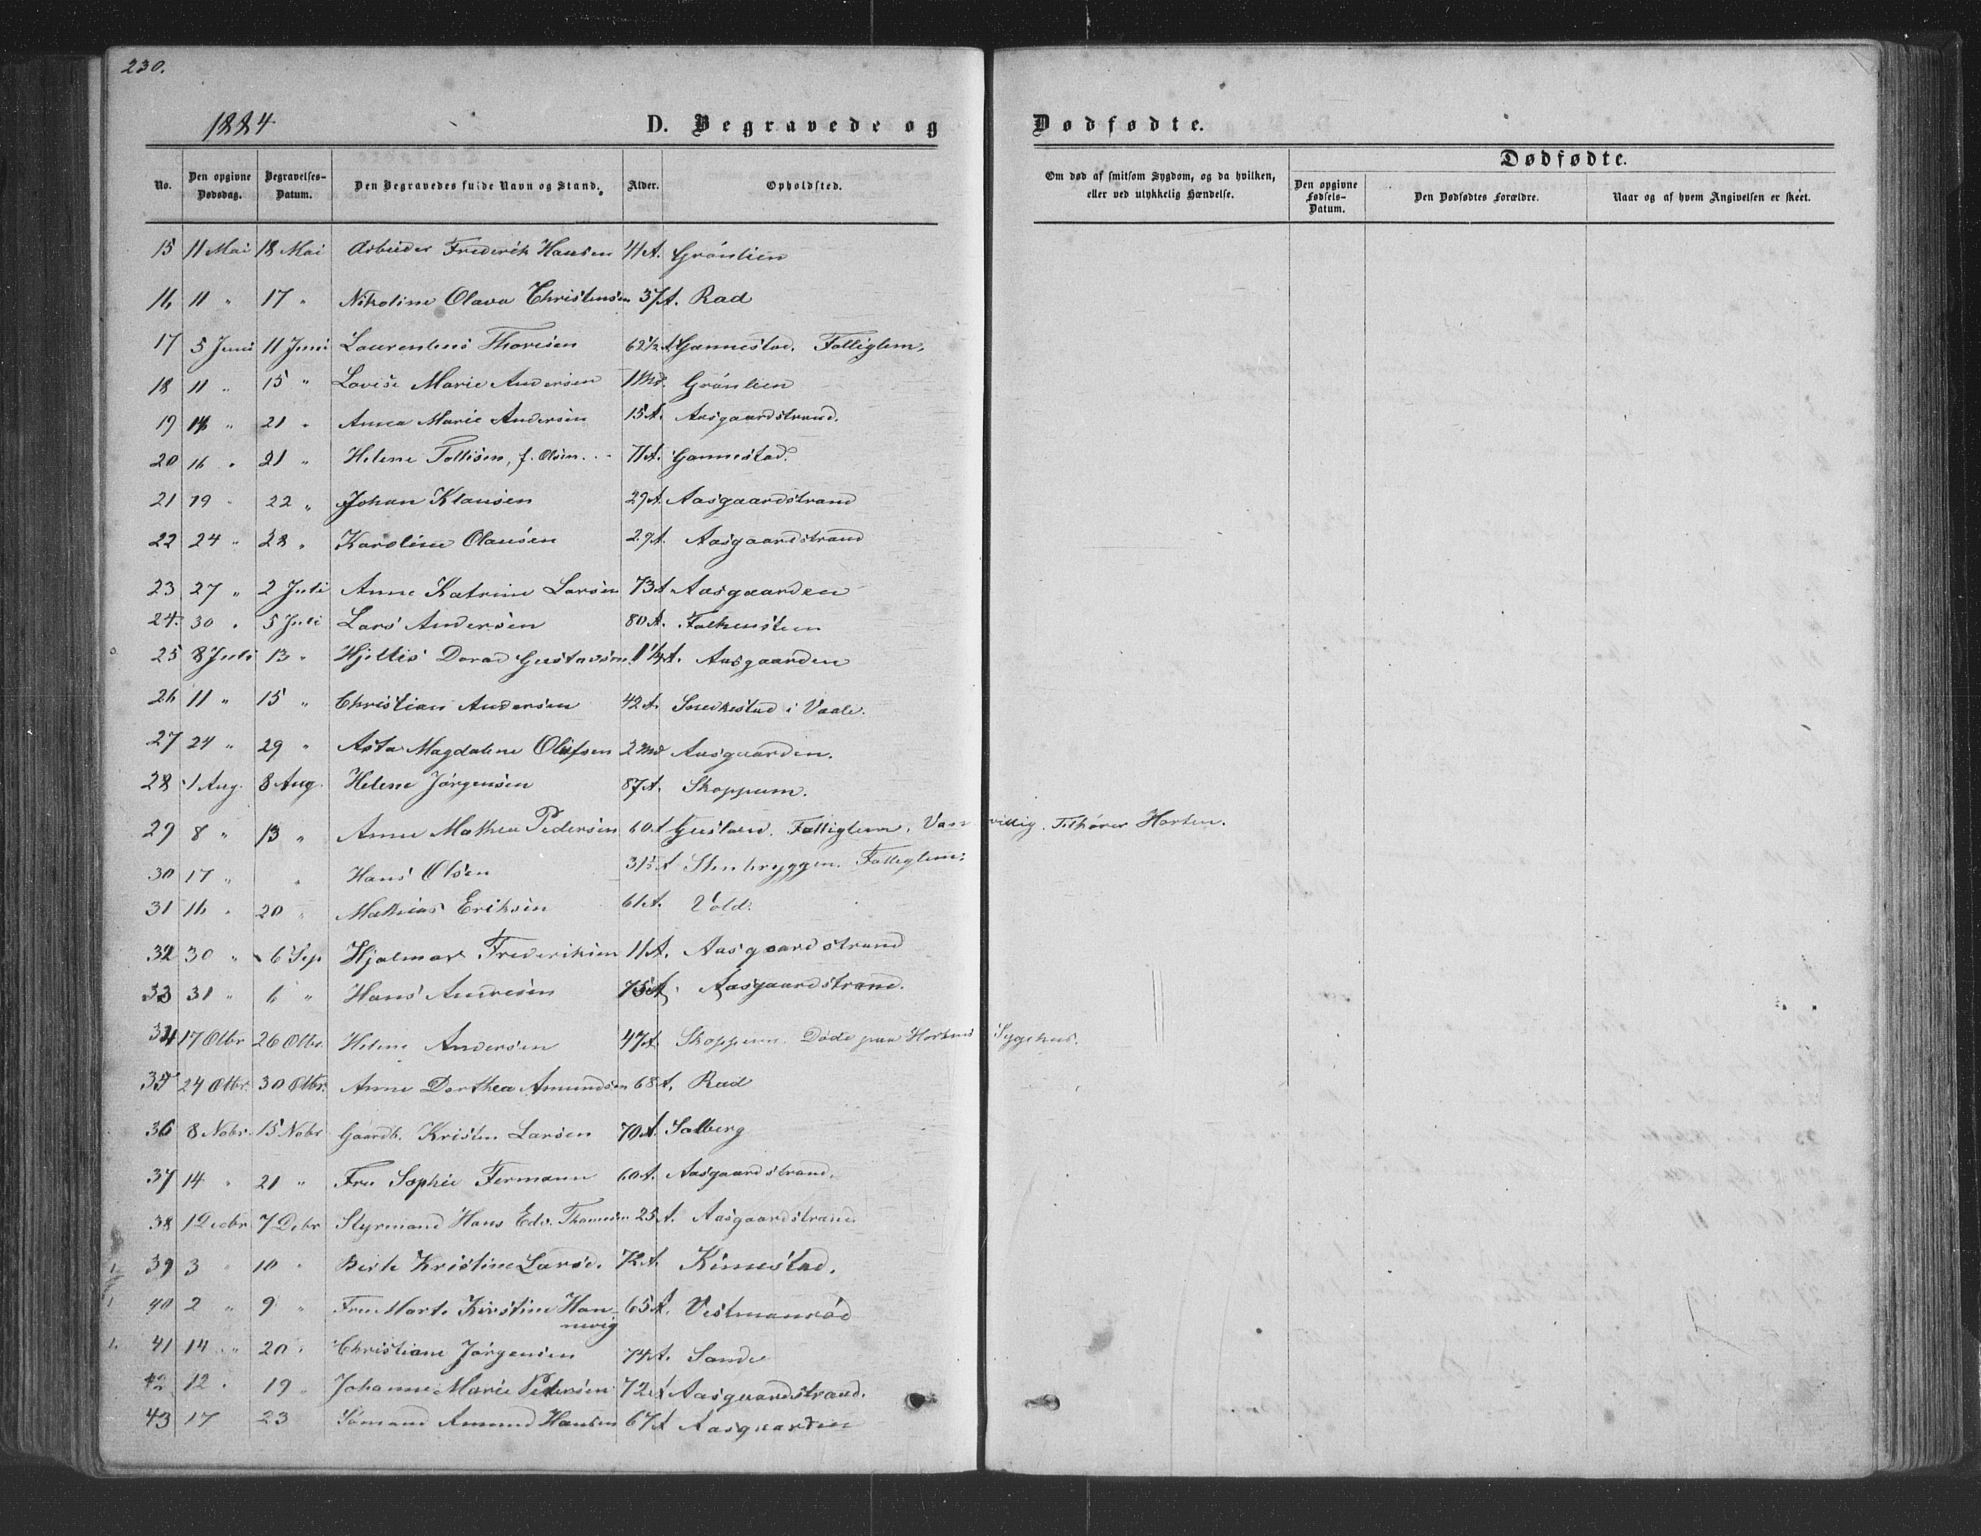 230.
1884
D. Begravede og Dødfødte.
Dødfødte.
No. Den opgivne Dødsdag. Begravelses-Datum. Den Begravedes fulde Navn og Stand. Alder. Opholdsted. Om død af smitsom Sygdom, og da hvilken, eller ved ulykkelig Hændelse. Den opgivne Fødsels-Datum. Den Dødfødtes Forældre. Naar og af hvem Angivelsen er skeet.
15 11 Mai 18 Mai Arbeider Frederik Hansen 41 A. Grönlien
16 11 " 17 " Nikoline Olava Christensen 37 A. Rad
17 5 Juni 11 Juni Laurentius Thoresen 62½ A Gannestad. Fattiglem.
18 11 " 15 " Lovise Marie Andersen 1 Md. Grönlien
19 14 " 21 " Anna Marie Andersen 15 A. Aasgaardstrand.
20 16 " 21 " Helene Tollisen, f. Olsen 71 A. Gannestad.
21 19 " 22 " Johan Klausen 29 A. Aasgaardstrand
22 24 " 28 " Karoline Olausen 29 A. Aasgaardstrand
23 27 " 2 Juli Anne Katrine Larsen 73 A Aasgaarden
24. 30 " 5 Juli Lars Andersen 80 A. Falkensteen
25 8 Juli 13 " Dorad Gustavsen 1¼ A. Aasgaarden
26 11 " 15 " Christian Andersen 42 A. i Vaale.
27 24 " 29 " Asta Magdalene Olufsen 2 Md Aasgaarden.
28 1 Aug. 8 Aug. Helene Jörgensen 87 A. Skoppum.
29 8 " 13 " Anne Mathea Pedersen 60 A Fattiglem. Vanvittig. Tilhører Horten.
30 17 " " Hans Olsen 31½ A Stenbryggen. Fattiglem.
31 16 " 20 " Mathias Eriksen 61 A. Vold.
32 30 " 6 Sep Hjalmar Frederiksen 11 A. Aasgaardstrand
33 31 " 6 " Hans Andresen 75 A. Aasgaardstrand.
34 17 Otbr 26 Otbr. Helene Andersen 47 A Skoppum. Døde paa Hortens Sygehus.
35 24 Otbr. 30 Otbr. Anne Dorthea Amundsen 68 A. Rad
36 8 Nobr. 15 Nobr Gaardb. Kristen Larsen 70 A. Solberg
37 14 " 21 " Fru Sophie Fermann 60 A. Aasgaardstrand.
38 1 Decbr 7 Debr Styrmand Hans Edv. Thomesen 25 A. Aasgaardstrand.
39 3 " 10 " Berte Kristine Larsd. 72 A. Kinnestad.
40 2 " 9 " Fru Marte Kirstine Hannevig 65 A. Vestmanröd
41 14 " 20 " Christiane Jørgensen 74 A. Sande
42 12 " 19 " Johanne Marie Petersen 72 A Aasgaardstrand.
43 17 23 Sømand Amund Hansen 67 A Aasgaarden